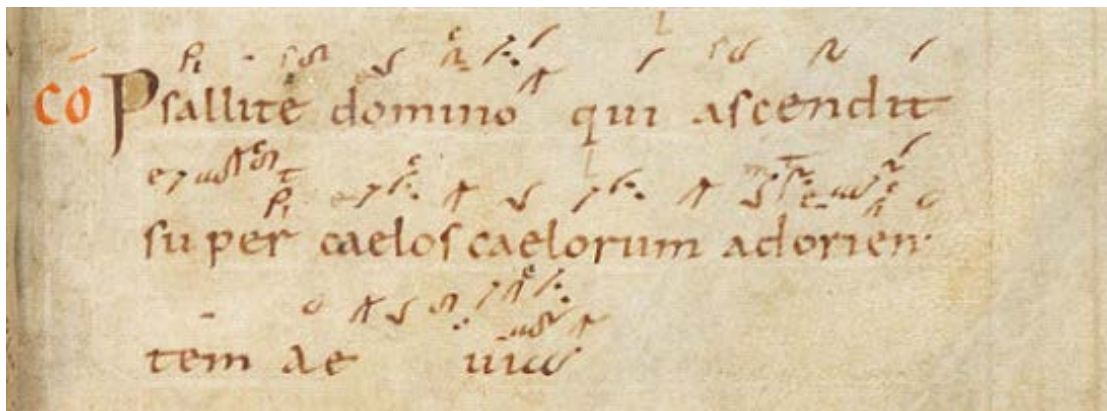 CŌ Psallite domino qui ascendit
super caelos caelorum adorien
tem ae uia